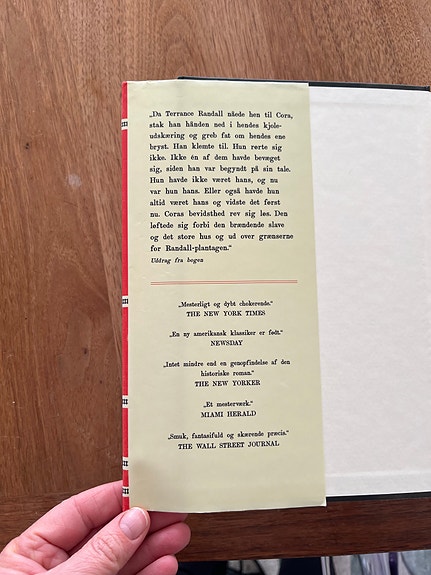 „Da Terrance Randall nåede hen til Cora,
stak han hånden ned i hendes kjole-
udskæring og greb fat om hendes ene
bryst. Han klemte til. Hun rørte sig
ikke. Ikke én af dem havde bevæget
sig, siden han var begyndt på sin tale.
Hun havde ikke været hans, og nu
var hun hans. Eller også havde hun
altid været hans og vidste det først
nu. Coras bevidsthed rev sig løs. Den
løftede sig forbi den brændende slave
og det store hus og ud over grænserne
for Randall-plantagen.“
Uddrag fra bogen
„Mesterligt og dybt chokerende.“
THE NEW YORK TIMES
„En ny amerikansk klassiker er født.“
NEWSDAY
„Intet mindre end en genopfindelse af den
historiske roman.“
THE NEW YORKER
„Et mesterværk.“
MIAMI HERALD
„Smuk, fantasifuld og skærende præcis.“
THE WALL STREET JOURNAL